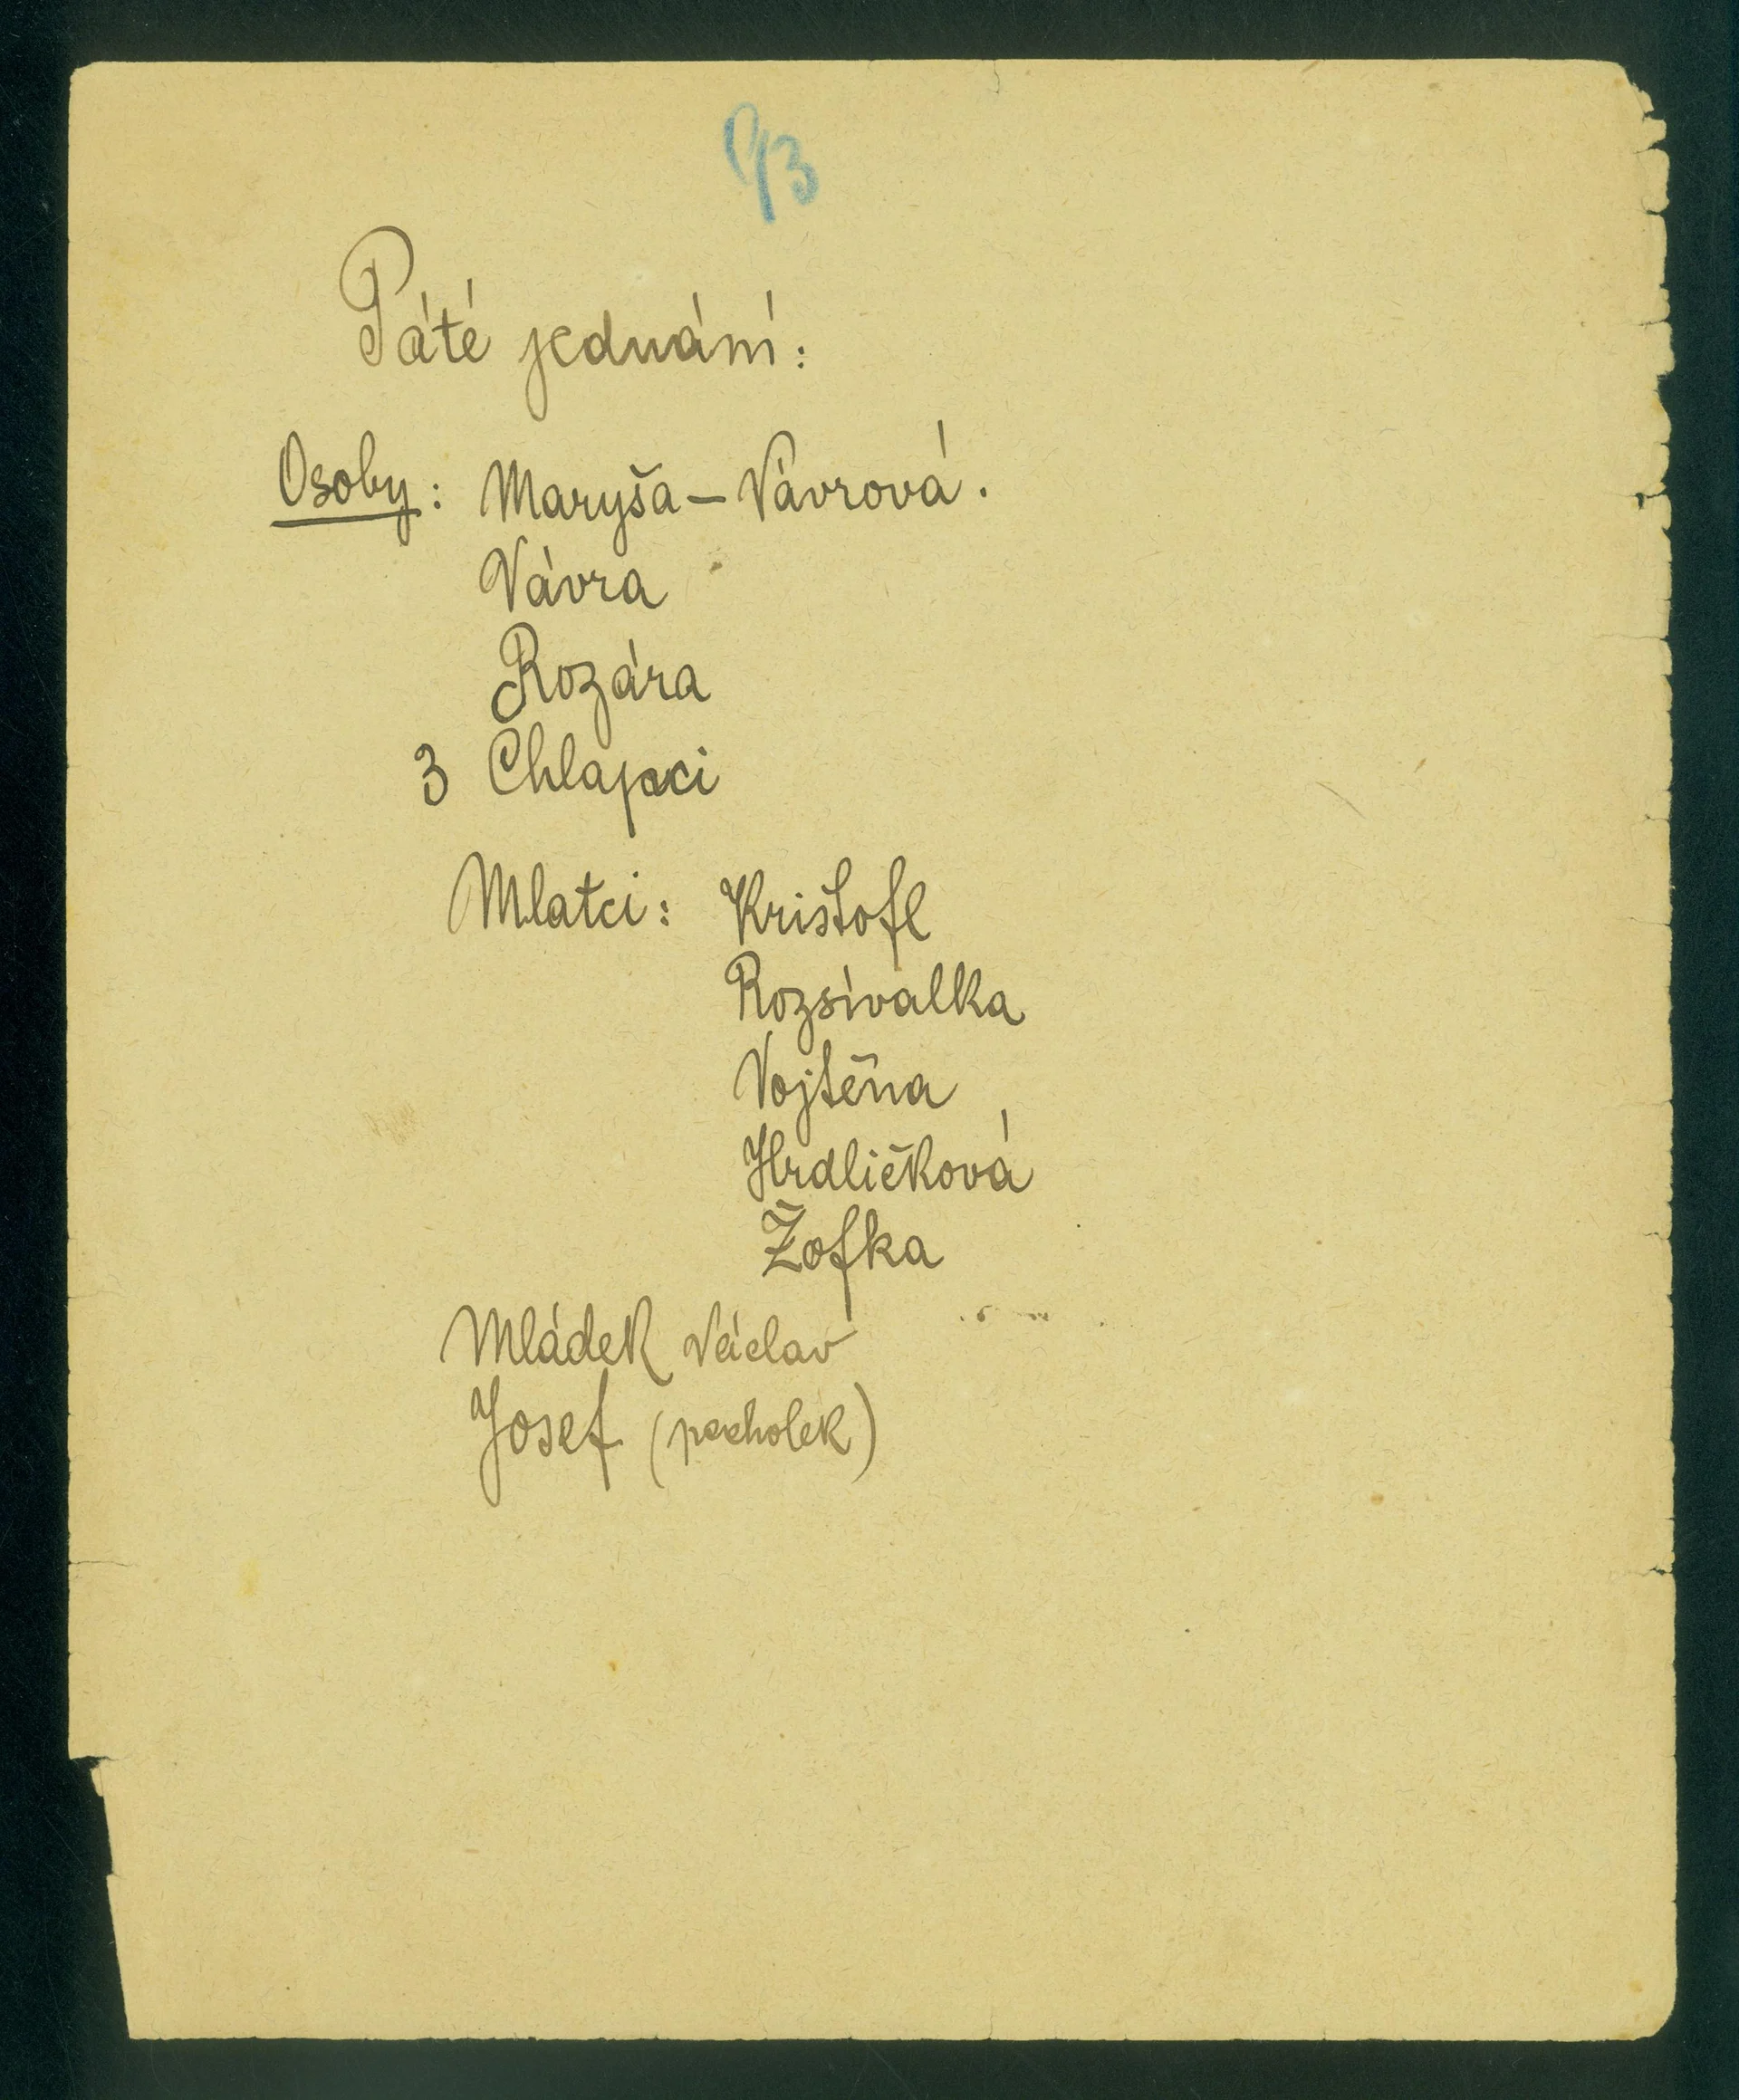 93
Páté jednání:
Osoby: Maryša – Vávrová.
Vávra
Rozára
3 Chlapci
Mlatci: Krištofl
Rozsívalka
Vojtěna
Hrdličková
Žofka
Mládek Václav
Josef (pacholek)